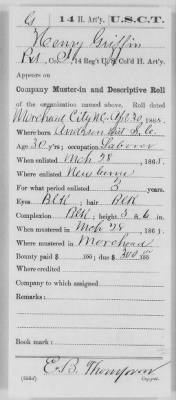 G | 14 H. Art'y. | U.S.C.T.
Henry Griffin
Pvt, Co. , 14 Reg't U. S. Col'd H. Art'y.
Appears on
Company Muster-in and Descriptive Roll
of the organization named above. Roll dated
Morehead City N.C. Apl 30, 1865.
Where born S.C.
Age 30 y'rs; occupation Laborer
When enlisted Mch 28, 1865.
Where enlisted New Berne
For what period enlisted 3 years.
Eyes BLK; hair BLK
Complexion BLK; height 5 ft. 6 in.
When mustered in Mch 28, 1865.
Where mustered in Morehead
Bounty paid $ 100; due $ 300 100
Where credited
Company to which assigned
Remarks:
Book mark:
E. B. Thompson
Copyist.